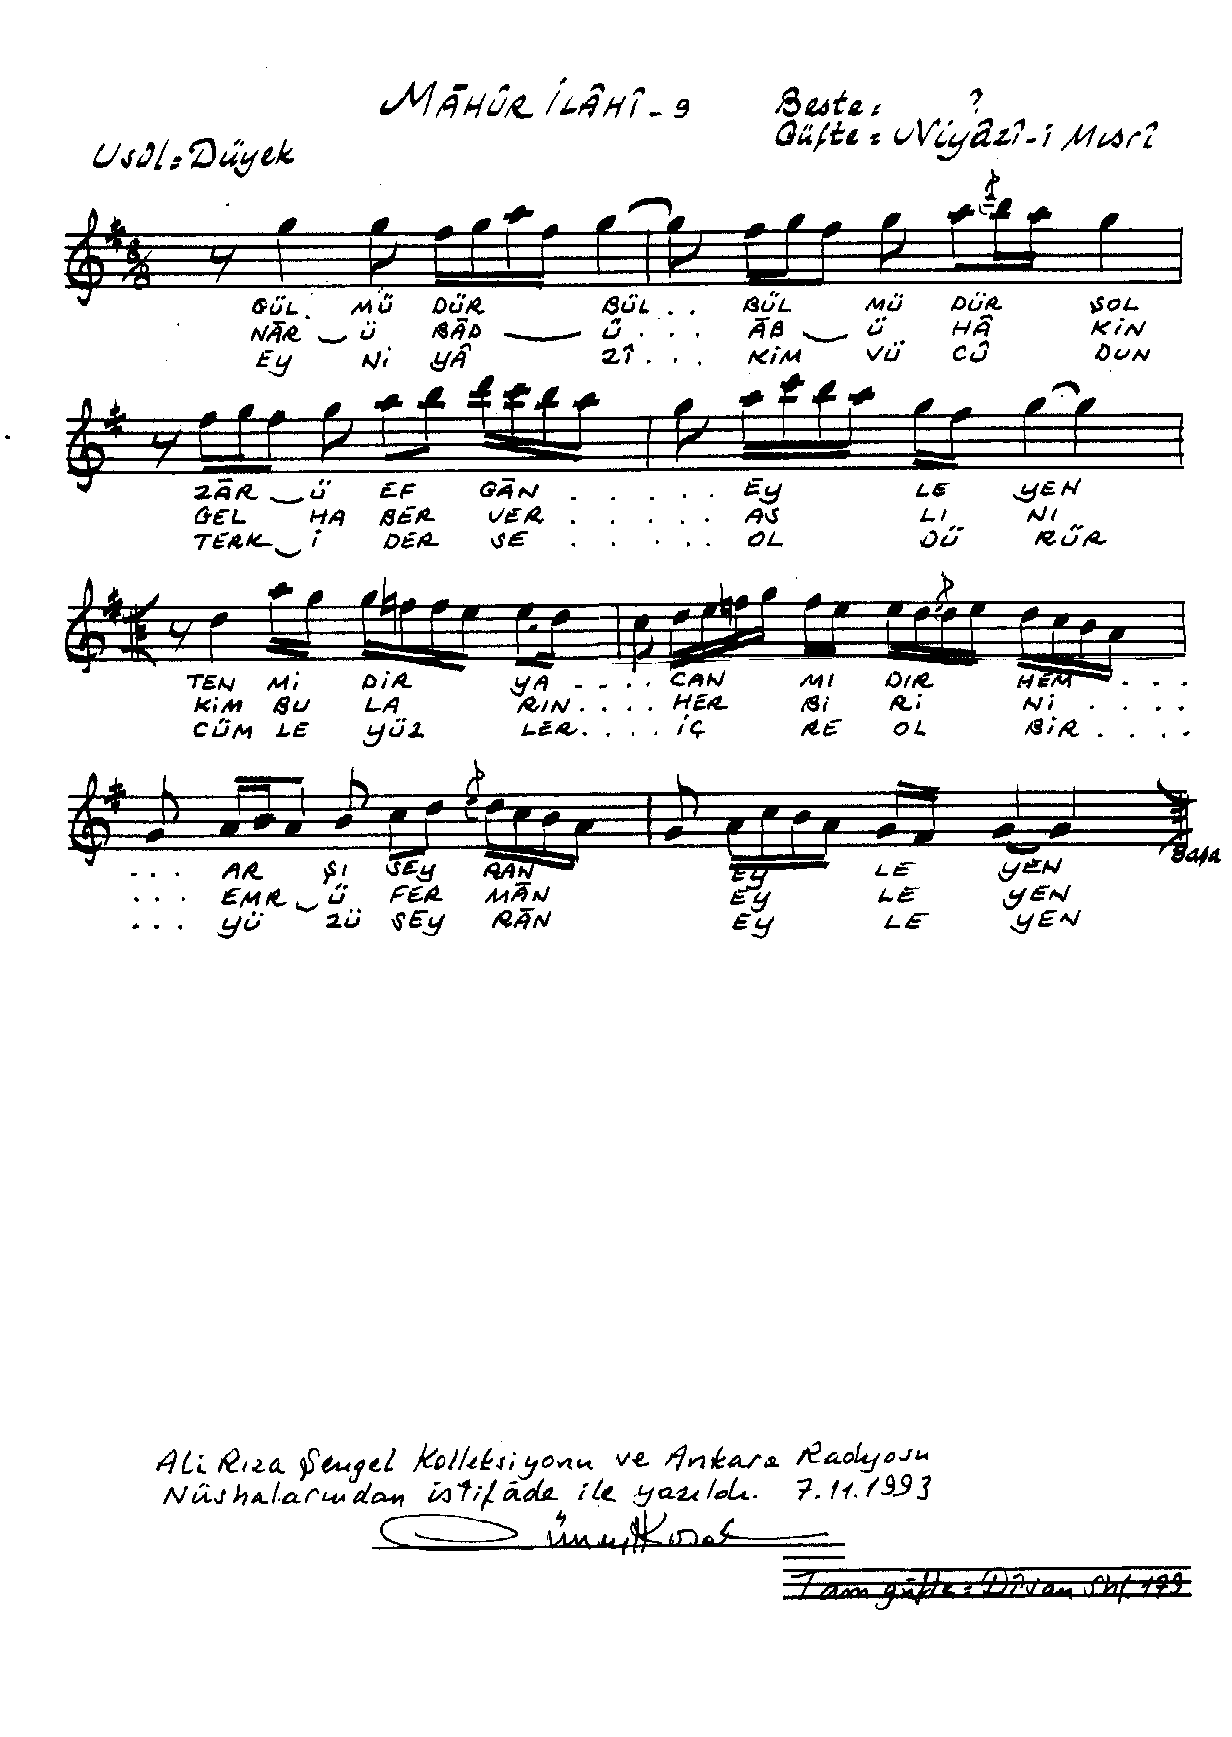 MĀHÛR İLÂHÎ - 9
Beste : ?
Güfte : Niyâzî-i Mısrî
Usûl : Düyek
8/8
GÜL . MÜ DÜR BÜL . . BÜL MÜ DÜR ŞOL
NĀR Ü BĀD Ü . . . ĀB Ü HÂ KİN
EY Nİ YÂ ZÎ . . . KİM VÜ CÛ DUN
ZĀR Ü EF GĀN . . . . . EY LE YEN
GEL HA BER VER . . . . . AS LI NI
TERK İ DER SE . . . . . OL DÜ RÜR
TEN Mİ DİR YA . . . . CAN MI DIR HEM . . .
KİM BU LA RIN . . . . HER Bİ Rİ Nİ . . . .
CÜM LE YÜZ LER . . . . İÇ RE OL BİR . . . .
. . . AR ŞI SEY RAN EY LE YEN
. . . EMR Ü FER MĀN EY LE YEN
. . . YÜ ZÜ SEY RĀN EY LE YEN
Başa
Ali Rıza Şengel Kolleksiyonu ve Ankara Radyosu
Nüshalarından istifâde ile yazıldı. 7.11.1993
Tam güfte : Dîvan Shf. 179